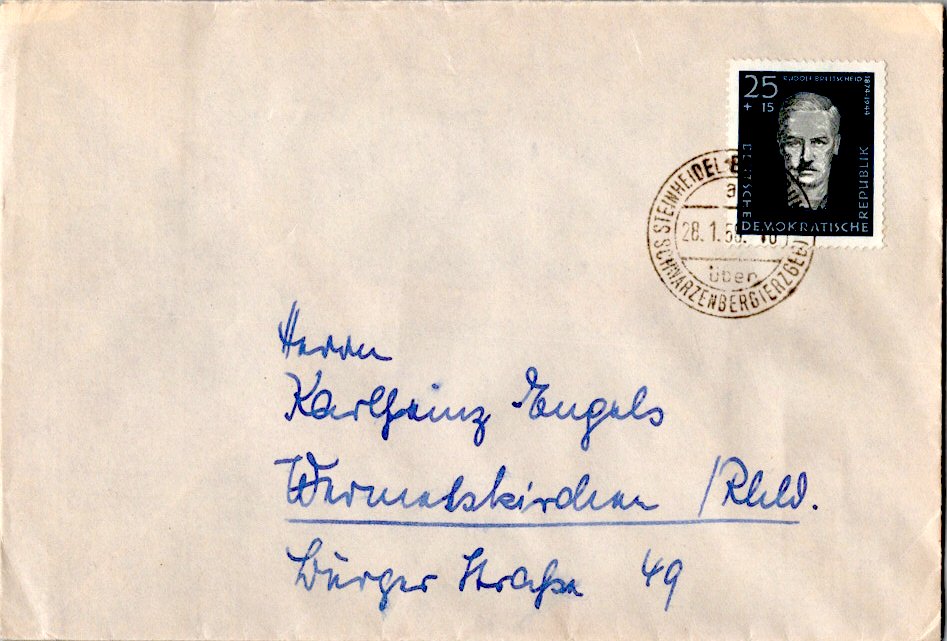 25
+ 15
RUDOLF BREITSCHEID
1874-1944
DEUTSCHE
DEMOKRATISCHE
REPUBLIK
STEINHEIDEL
a
28. 1. 58.
über
SCHWARZENBERG (ERZGEB)
Herrn
Karlheinz Engels
Wermelskirchen /Rhld.
Burger Straße 49